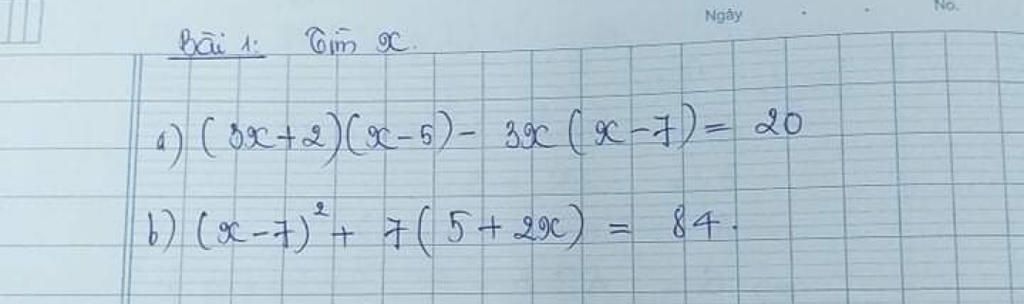 Ngày
No.
Bài 1: Tìm x.
a) (3x+2)(x-5) - 3x(x-7) = 20
b) (x-7)² + 7(5+2x) = 84.